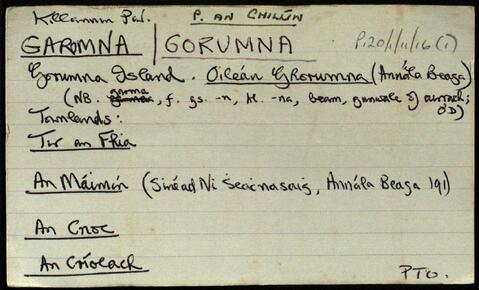 Killannin Par. P. AN CHILLÍN
GARMNA | GORUMNA P120/1/11/16 (i)
Gorumna Island. Oileán GRorumna (Annála Beaga)
(NB. garma, f. gs. -n, pl. -na, beam, gunwale of currach; Ó D)
Townlands:
Tír an Fhia
An Máimín (Sinéad Ní Seacnasaig, Annála Beaga 191)
An Cnoc
An Críolach
PTO.